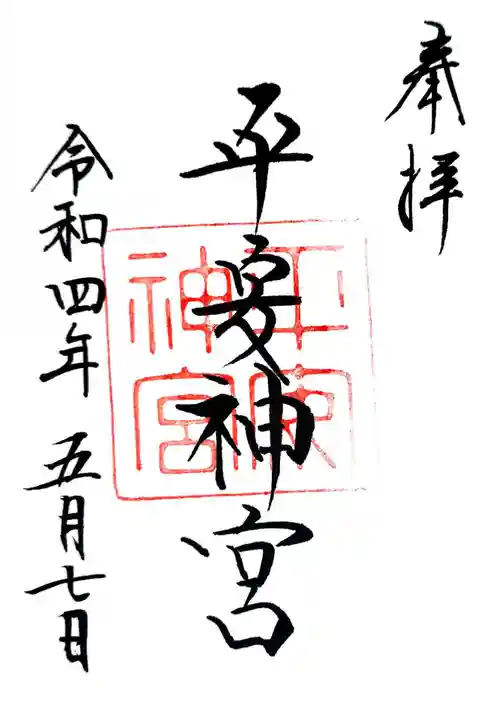 奉拝
平安神宮
平安神宮
令和四年五月七日